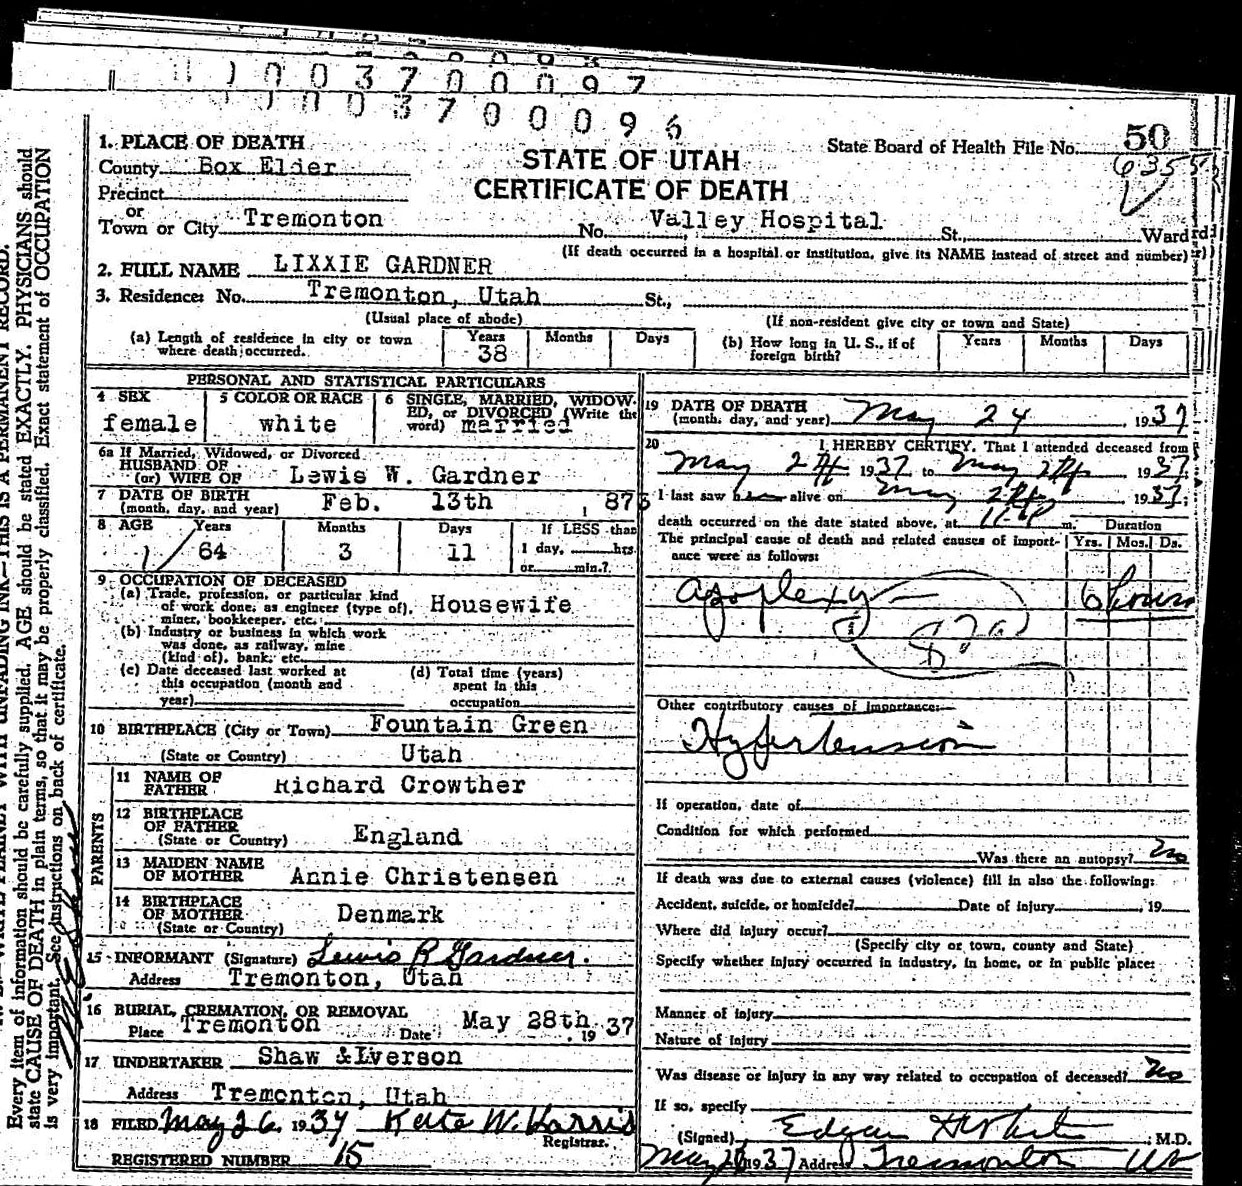 1 0 0 3 7 0 0 0 9 7
0 0 3 7 0 0 0 9 6
1. PLACE OF DEATH
County Box Elder
Precinct
or
Town or City Tremonton
STATE OF UTAH
CERTIFICATE OF DEATH
State Board of Health File No. 50
No. Valley Hospital St., Ward
(If death occurred in a hospital or institution, give its NAME instead of street and number)
2. FULL NAME LIXXIE GARDNER
3. Residence: No. Tremonton, Utah St.,
(Usual place of abode)
(If non-resident give city or town and State)
(a) Length of residence in city or town where death occurred. Years 38 Months Days
(b) How long in U. S., if of foreign birth? Years Months Days
PERSONAL AND STATISTICAL PARTICULARS
4 SEX female
5 COLOR OR RACE white
6 SINGLE, MARRIED, WIDOWED, or DIVORCED (Write the word) married
6a If Married, Widowed, or Divorced
HUSBAND OF
(or) WIFE OF Lewis W. Gardner
7 DATE OF BIRTH
(month, day, and year) Feb. 13th , 873
8 AGE Years 64 Months 3 Days 11 If LESS than
1 day, hrs.
or min.?
9 OCCUPATION OF DECEASED
(a) Trade, profession, or particular kind
of work done, as engineer (type of),
miner, bookkeeper, etc. Housewife
(b) Industry or business in which work
was done, as railway, mine
(kind of), bank, etc.
(c) Date deceased last worked at
this occupation (month and
year)
(d) Total time (years)
spent in this
occupation
10 BIRTHPLACE (City or Town) Fountain Green
(State or Country) Utah
PARENTS
11 NAME OF
FATHER Richard Crowther
12 BIRTHPLACE
OF FATHER
(State or Country) England
13 MAIDEN NAME
OF MOTHER Annie Christensen
14 BIRTHPLACE
OF MOTHER
(State or Country) Denmark
15 INFORMANT (Signature) Lewis R Gardner.
Address Tremonton, Utah
16 BURIAL, CREMATION, OR REMOVAL
Place Tremonton Date May 28th, 1937
17 UNDERTAKER Shaw & Iverson
Address Tremonton, Utah
18 FILED May 26, 1937 Kate W. Harris
Registrar.
REGISTERED NUMBER 15
19 DATE OF DEATH
(month, day, and year) May 24 1937
20 I HEREBY CERTIFY, That I attended deceased from
May 24 1937, to May 24 1937
I last saw her alive on May 24 1937;
death occurred on the date stated above, at m.
Duration
The principal cause of death and related causes of importance were as follows: Yrs. Mos. Ds.
Apoplexy 6 hours
Other contributory causes of importance:
Hypertension
If operation, date of
Condition for which performed
Was there an autopsy? No
If death was due to external causes (violence) fill in also the following:
Accident, suicide, or homicide? Date of injury , 19
Where did injury occur?
(Specify city or town, county and State)
Specify whether injury occurred in industry, in home, or in public place:
Manner of injury
Nature of injury
Was disease or injury in any way related to occupation of deceased? No
If so, specify
(Signed) Edgar , M.D.
May 1937 Address Tremonton Ut
Every item of information should be carefully supplied. AGE should be stated EXACTLY. PHYSICIANS should
state CAUSE OF DEATH in plain terms, so that it may be properly classified. Exact statement of OCCUPATION
is very important. See instructions on back of certificate.